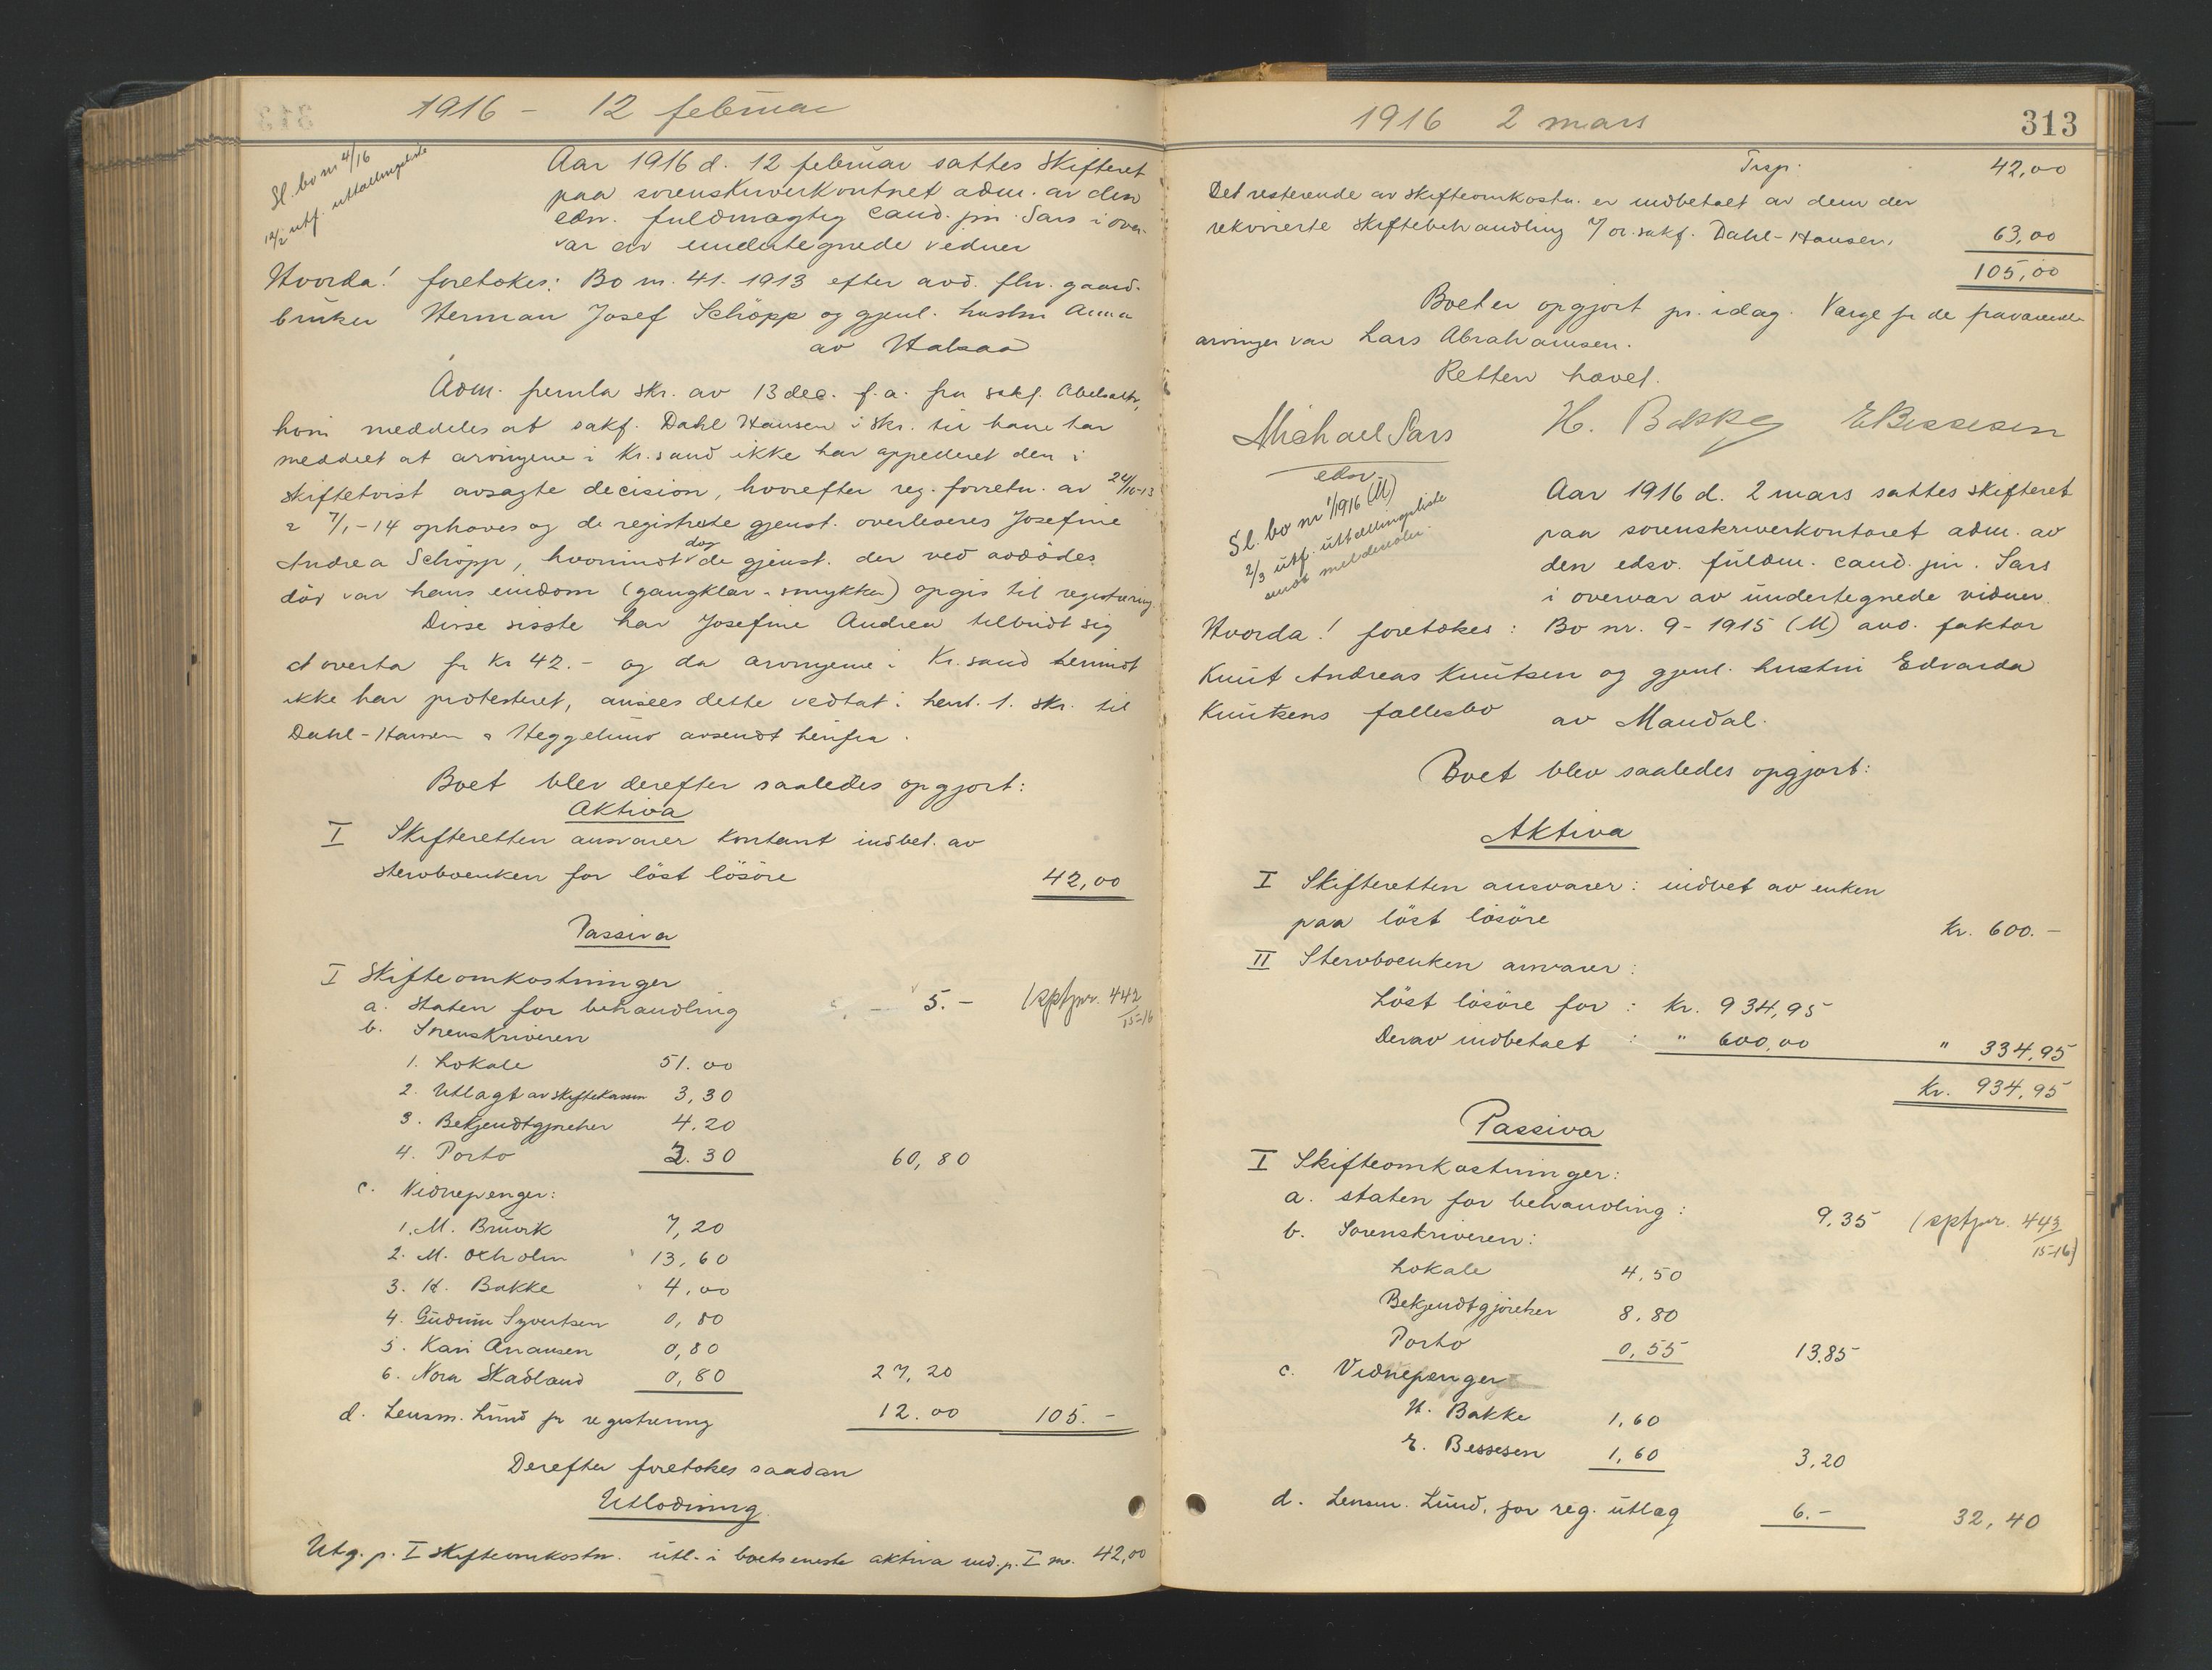 1916 - 12 februar
Sl. bo nr 4/16
12/2 utf. uttællingsliste
Aar 1916 d. 12 februar sattes skifteret
paa sorenskriverkontoret adm. av den
edsv. fuldmægtig cand. jur. Sars i over-
vær av undertegnede vidner
Hvorda! foretokes: Bo nr. 41. 1913 efter avd. fhv. gaard-
bruker Herman Josef Schöpp og gjenl. hustru Anna
av Halsaa
Adm. fremla skr. av 13 dec. f.a. fra sakf.
hvori meddeles at sakf. Dahl Hansen i skr. til ham har
meddelt at arvingene i Kr.sand ikke har appelleret den i
skiftetvist avsagte decision, hvorefter reg. forretn. av 24/10-13
& 7/1-14 ophæves og de registrerte gjenst. overleveres Josefine
Andrea Schöpp, hvorimot dog de gjenst. der ved avdödes
död var hans eiendom (gangklær & smykker) opgis til registrering.
Disse sisste har Josefine Andrea tilbudt sig
at overta for Kr 42.- og da arvingene i Kr.sand herimot
ikke har protesteret, ansees dette vedtat: henh. t. skr. til
Dahl-Hansen & Heggelund avsendt herfra.
Boet blev derefter saaledes opgjort:
Aktiva
I Skifteretten ansvarer kontant indbet. av
stervboenken for löst lösöre 42,00
Passiva
I Skifteomkostninger
a. Staten for behandling 5.- (sptjnr. 442
15-16
b. Sorenskriveren
1. Lokale 51.00
2. Utlagt av skiftekassen 3,30
3. Bekjendtgjörelser 4.20
4. Porto 2.30 60,80
c. Vidnepenger:
1. M. Bruvik 7,20
2. M. Oxholm 13,60
3. H. Bakke 4,00
4. Gudrun Syvertsen 0,80
5. Kari Aanansen 0,80
6. Nora Skadland 0,80 27,20
d. Lensm. Lund for registrering 12.00 105.-
Derefter foretokes saadan
Utlodning
Utg. p. I skifteomkostn. utl. i boets eneste aktiva ind. p. I 42,00
1916 2 mars
313
Trsp. 42,00
Det resterende av skifteomkostn. er indbetalt av dem der
rekvirerte skiftebehandling v/ or. sakf. Dahl-Hansen, 63,00
105,00
Boet er opgjort pr. idag. Værge for de fraværende
arvinger var Lars Abrahamsen.
Retten hævet.
Michael Sars H. Bakke E Bessesen
edsv.
Sl. bo nr 1/1916 (M)
2/3 utf. uttællingsliste
Aar 1916 d. 2 mars sattes skifteret
paa sorenskriverkontoret adm. av
den edsv. fuldm. cand. jur. Sars
i overvær av undertegnede vidner.
Hvorda! foretokes: Bo nr. 9-1915 (M) avd. faktor
Knut Andreas Knutsen og gjenl. hustru Edvarda
Knutsens fællesbo av Mandal.
Boet blev saaledes opgjort:
Aktiva
I Skifteretten ansvarer: indbet av enken
paa löst lösöre Kr. 600.-
II Stervboenken ansvarer:
Löst lösöre for: Kr. 934,95
Derav indbetalt: " 600,00 " 334,95
Kr. 934,95
Passiva
I Skifteomkostninger:
a. staten for behandling: 9,35 (sptjnr. 443
15-16)
b. Sorenskriveren:
Lokale 4,50
Bekjendtgjörelser 8,80
Porto 0,55 13,85
c. Vidnepenger
H. Bakke 1,60
E. Bessesen 1,60 3,20
d. Lensm. Lund, for reg. utlæg 6.- 32,40